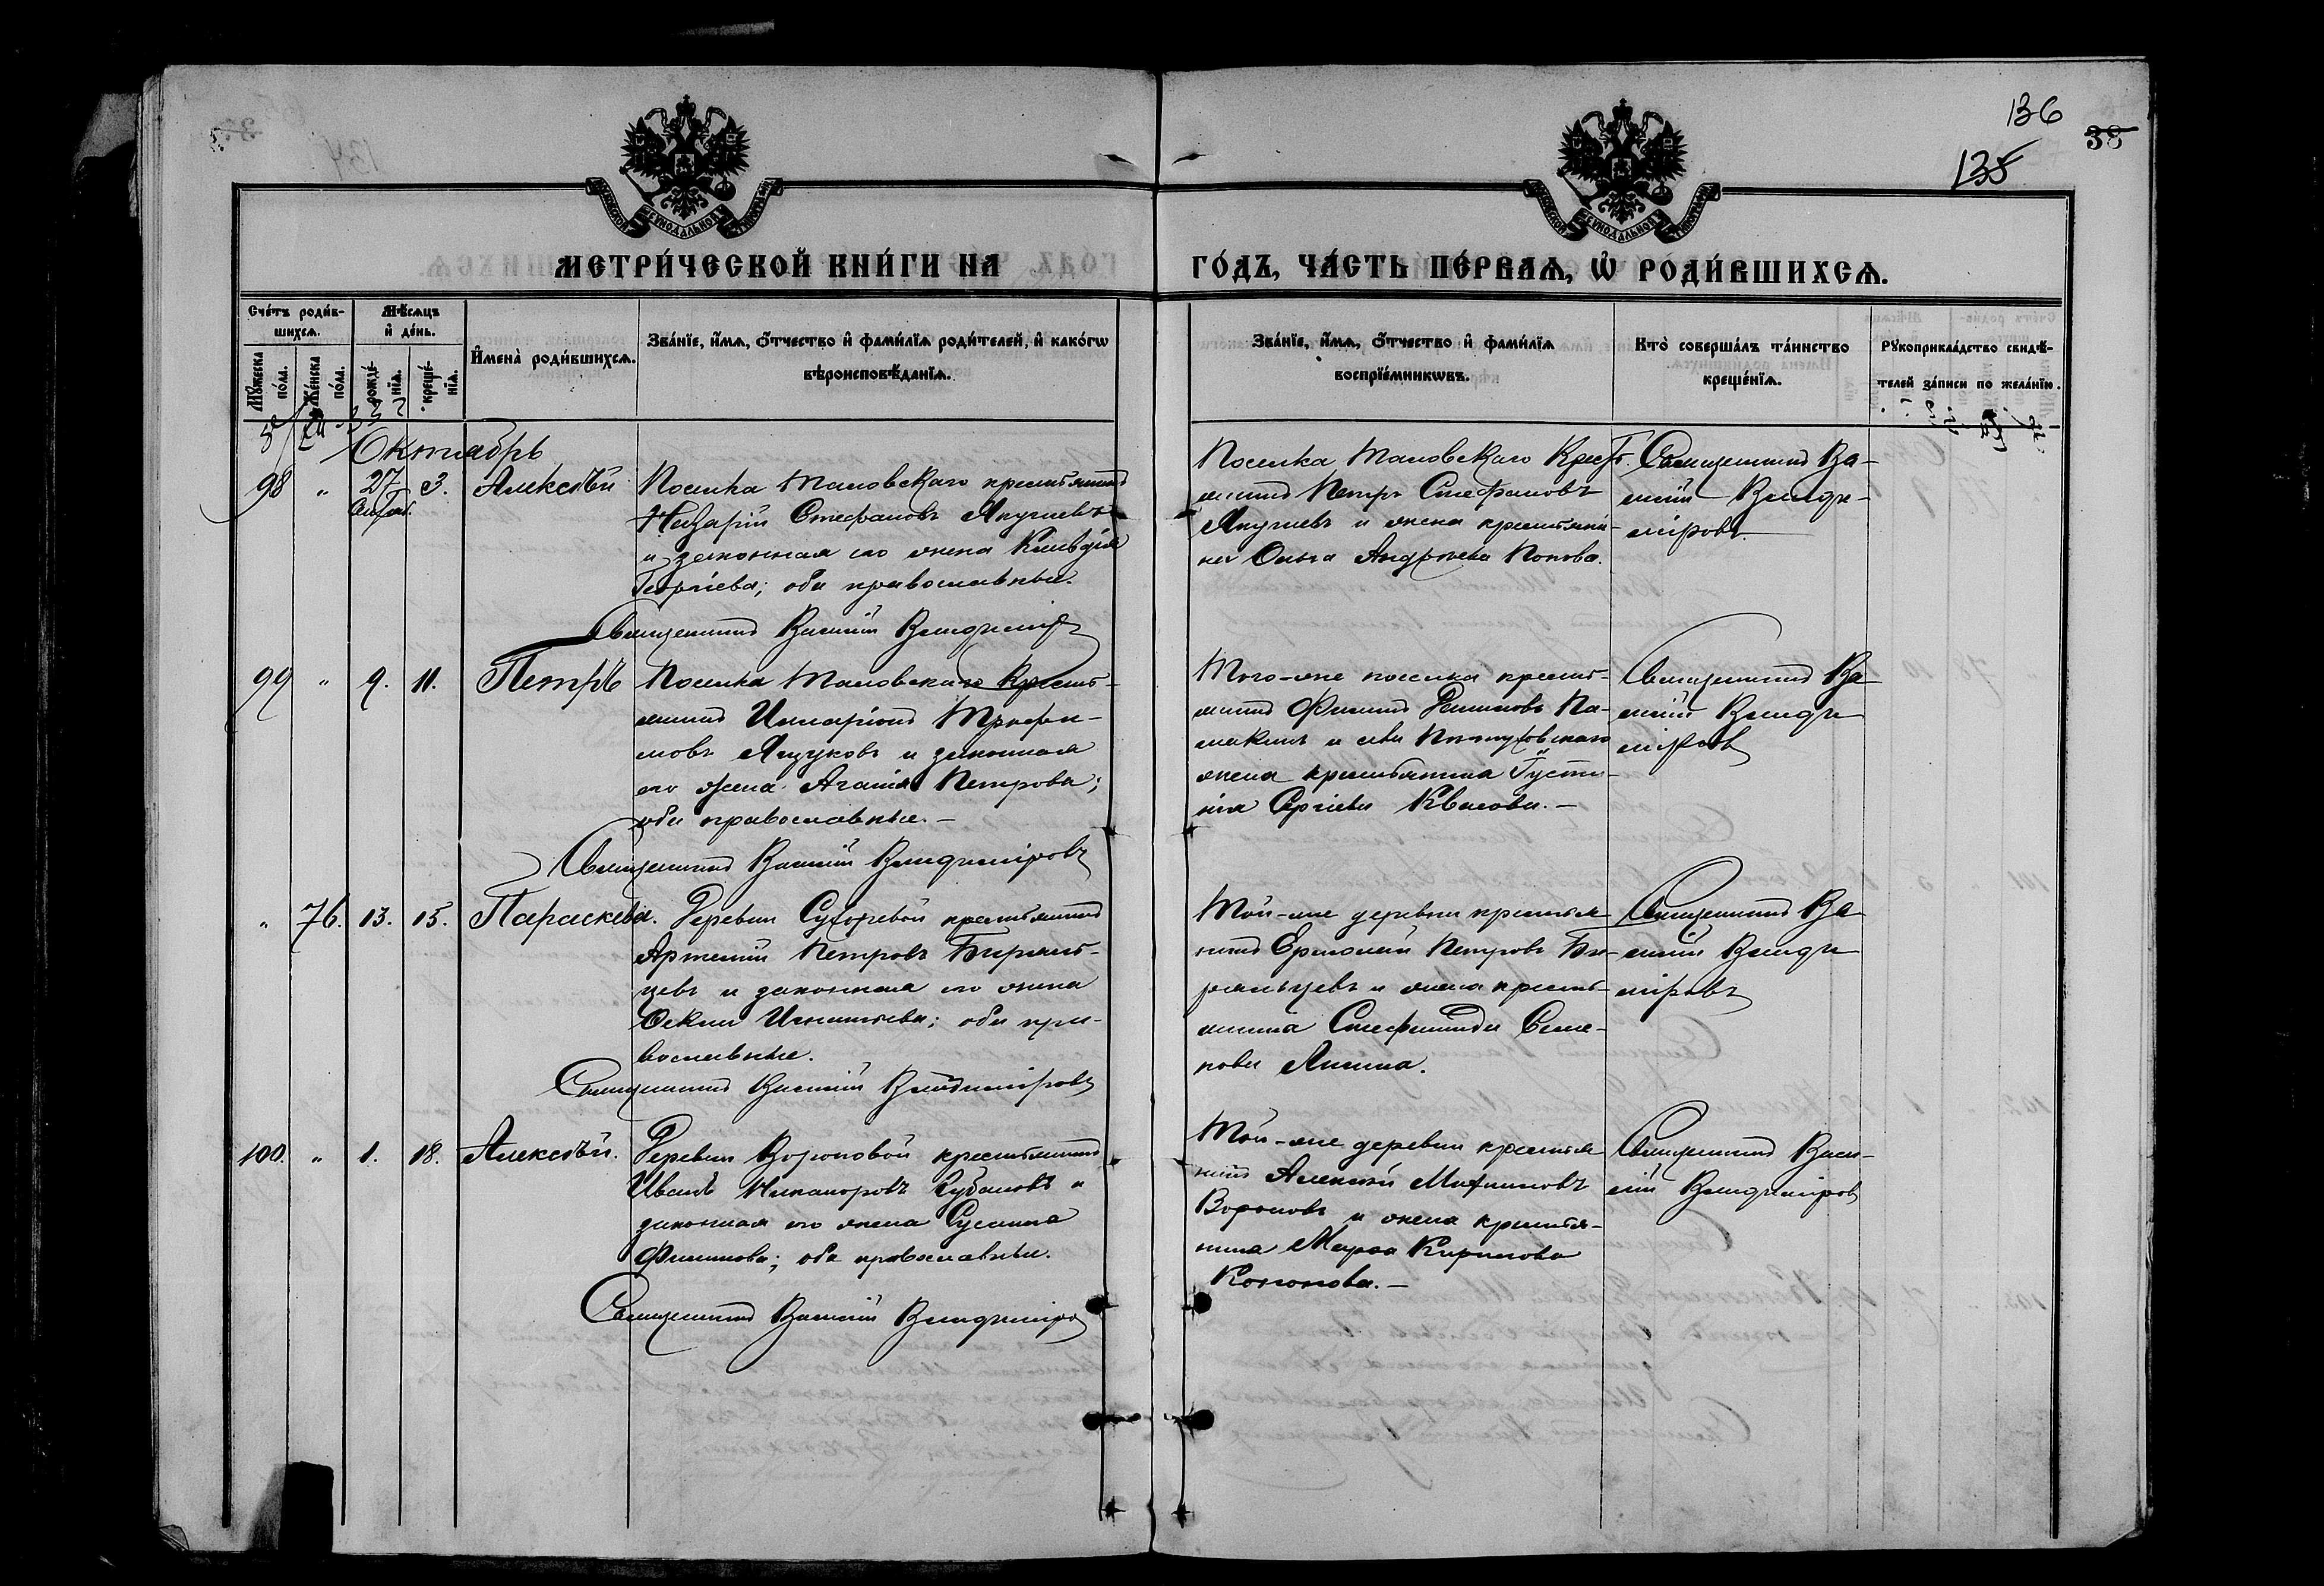 136
38
135
МЕТРИ́ЧЕСКОЙ КНИ́ГИ НА
ГО́ДЪ, ЧА́СТЬ ПЕ́РВАѦ, Ѡ РОДИ́ВШИХСѦ.
Сче́тъ роди́в-
шихсѧ.
Мꙋ́жеска по́ла.
Же́нска по́ла.
Мѣ́сѧцъ
и҆ де́нь.
рожде́нїѧ.
креще́нїѧ.
И҆мена̀ роди́вшихсѧ.
Зва́нїе, и҆́мѧ, ѻ҆́тчество и҆ фами́лїѧ роди́телей, и҆ како́гѡ
вѣроисповѣ́данїѧ.
Зва́нїе, и҆́мѧ, ѻ҆́тчество и҆ фами́лїѧ
воспрїе́мникѡвъ.
Кто̀ соверша́лъ та́инство
креще́нїѧ.
Рꙋкоприкла́дство свидѣ́-
телей за́писи по жела́нїю.
Октябрь
98 " 27 3. Алексѣй
Сент.
Поселка Таловскаго крестьянинъ
Назарій Стефановъ Якушевъ
и законная его жена Клавдія
Георгіева; оба православные.
Священникъ Василій Владиміровъ
Поселка Таловскаго Крест.
янинъ Петръ Стефановъ
Якушевъ и жена крестьяни-
на Ольга Андреева Попова.
Священникъ Ва-
силій Влади-
міровъ
99 " 9. 11. Петръ
Поселка Таловскаго Кресть-
янинъ Иларіонъ Трофи-
мовъ Ящуковъ и законная
его жена Агаѳія Петрова;
оба православные.—
Священникъ Василій Владиміровъ
Того-же поселка кресть-
янинъ Филипъ
жена крестьянина Густи-
нія Сергіева Квасова.—
Священникъ Ва-
силій Влади-
міровъ
" 76. 13. 15. Параскева.
Деревни крестьянинъ
Артемій Петровъ Бирюль-
цевъ и законная его жена
Ѳекла Игнатьева; оба пра-
вославные.
Священникъ Василій Владиміровъ
Той-же деревни крестья-
нинъ Ермолай Петровъ Би-
рюльцевъ и жена кресть-
янина Стефанида Семе-
нова
Священникъ Ва-
силій Влади-
міровъ
100. " 1. 18. Алексѣй.
Деревни Вороновой крестьянинъ
Иванъ Никаноровъ Рубановъ и
законная его жена Сусанна
Филипова; оба православные.
Священникъ Василій Владиміровъ
Той-же деревни крестья-
нинъ Алексѣй
Вороновъ и жена крестья-
нина Марѳа Кирилова
Кононова.—
Священникъ Васи-
лій Владиміровъ